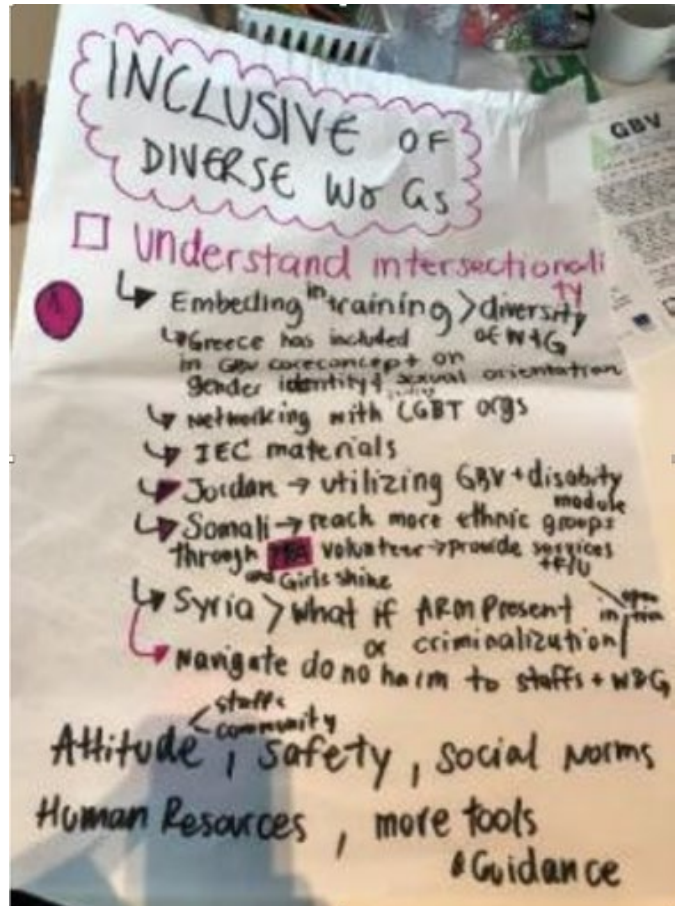 INCLUSIVE OF
DIVERSE W& Gs
Understand intersectionali
ty
Embeding in training > diversity
of W+G
Greece has included
in GBV coreconcept on
gender identity + sexual orientation
Networking with LGBT orgs
IEC materials
Jordan → utilizing GBV + disabity
module
Somali → reach more ethnic groups
through volunteer → provide services
+ F/U
and Girls shine
Syria > What if ARM Present in
or criminalization
Navigate do no harm to staffs + W&G
staffs
community
Attitude, Safety, Social Norms
Human Resources, more tools
& Guidance
GBV